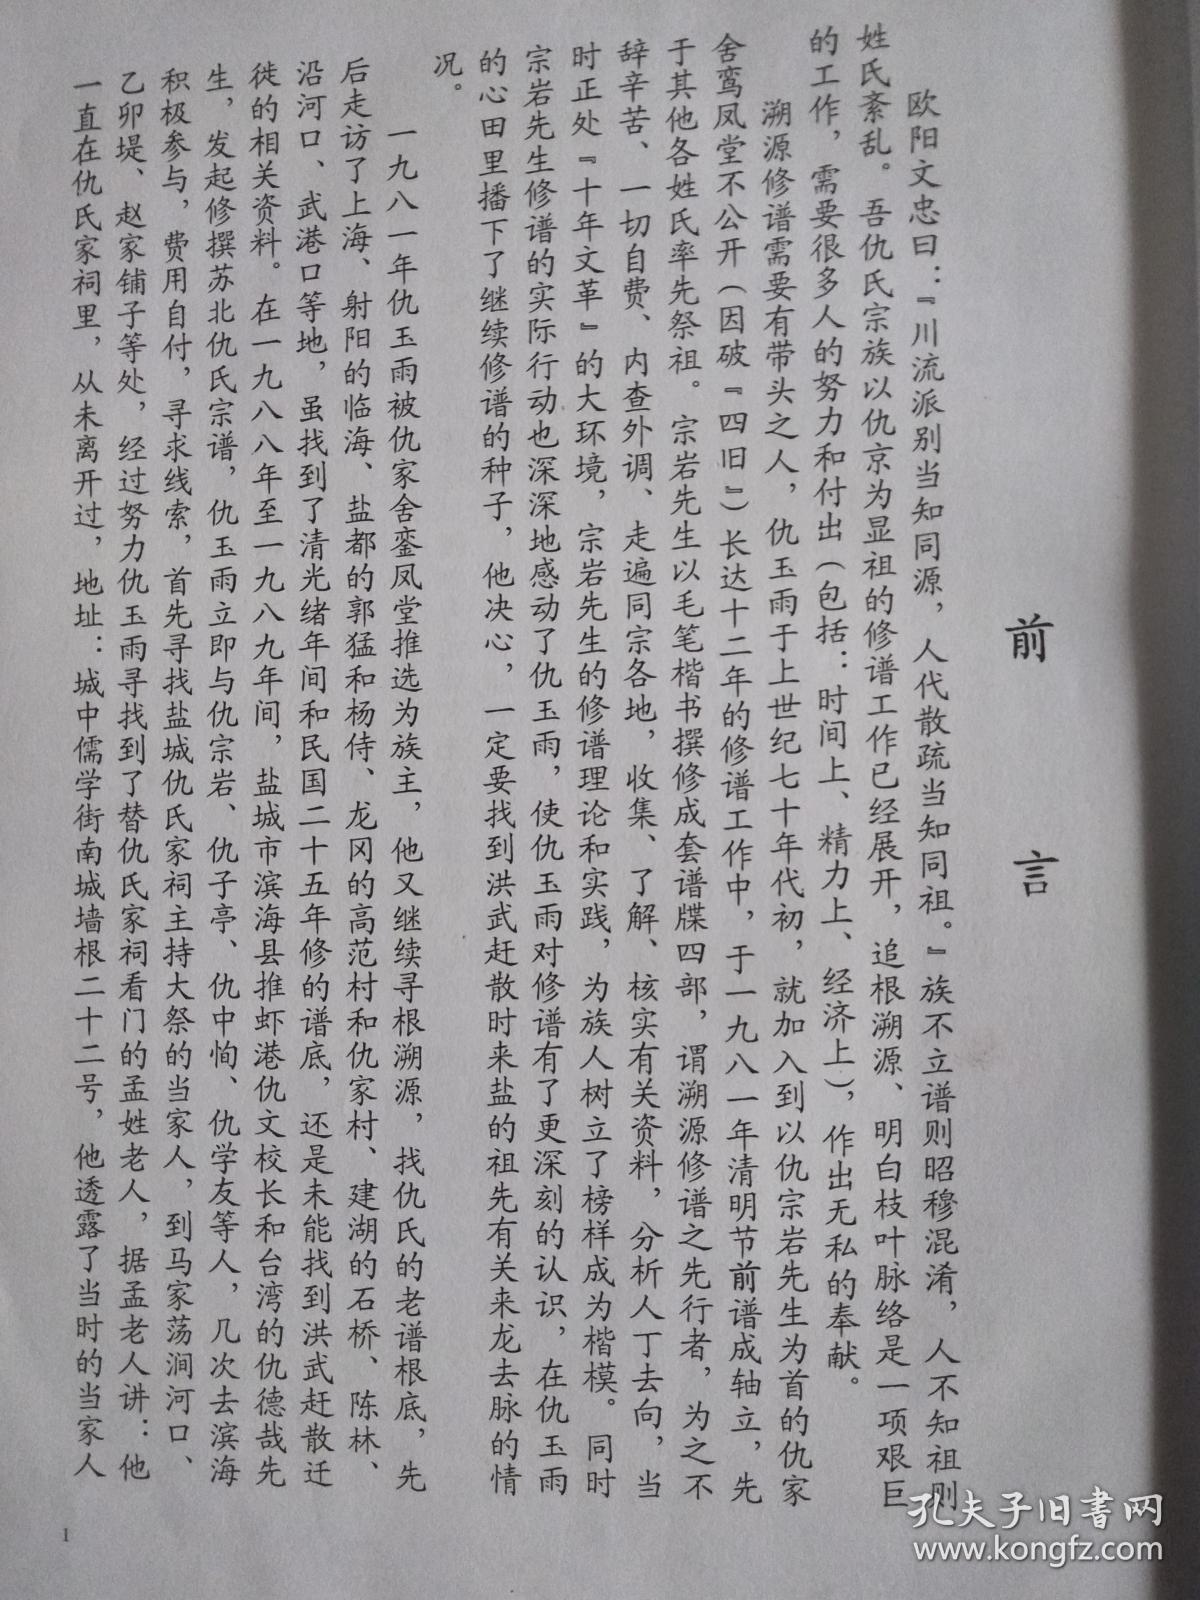 前言
欧阳文忠曰：『川流派别当知同源，人代散疏当知同祖。』族不立谱则昭穆混淆，人不知祖则
姓氏紊乱。吾仇氏宗族以仇京为显祖的修谱工作已经展开，追根溯源、明白枝叶脉络是一项艰巨
的工作，需要很多人的努力和付出（包括：时间上、精力上、经济上），作出无私的奉献。
溯源修谱需要有带头之人，仇玉雨于上世纪七十年代初，就加入到以仇宗岩先生为首的仇家
舍鸾凤堂不公开（因破『四旧』）长达十二年的修谱工作中，于一九八一年清明节前谱成轴立，先
于其他各姓氏率先祭祖。宗岩先生以毛笔楷书撰修成套谱牒四部，谓溯源修谱之先行者，为之不
辞辛苦、一切自费、内查外调、走遍同宗各地，收集、了解、核实有关资料，分析人丁去向，当
时正处『十年文革』的大环境，宗岩先生的修谱理论和实践，为族人树立了榜样成为楷模。同时
宗岩先生修谱的实际行动也深深地感动了仇玉雨，使仇玉雨对修谱有了更深刻的认识，在仇玉雨
的心田里播下了继续修谱的种子，他决心，一定要找到洪武赶散时来盐的祖先有关来龙去脉的情
况。
一九八一年仇玉雨被仇家舍銮凤堂推选为族主，他又继续寻根溯源，找仇氏的老谱根底，先
后走访了上海、射阳的临海、盐都的郭猛和杨侍、龙冈的高范村和仇家村、建湖的石桥、陈林、
沿河口、武港口等地，虽找到了清光绪年间和民国二十五年修的谱底，还是未能找到洪武赶散迁
徙的相关资料。在一九八八年至一九八九年间，盐城市滨海县推虾港仇文校长和台湾的仇德哉先
生，发起修撰苏北仇氏宗谱，仇玉雨立即与仇宗岩、仇子亭、仇中恂、仇学友等人，几次去滨海
积极参与，费用自付，寻求线索，首先寻找盐城仇氏家祠主持大祭的当家人，到马家荡涧河口、
乙卯堤、赵家铺子等处，经过努力仇玉雨寻找到了替仇氏家祠看门的孟姓老人，据孟老人讲：他
一直在仇氏家祠里，从未离开过，地址：城中儒学街南城墙根二十二号，他透露了当时的当家人
1
孔夫子旧书网
www.kongfz.com